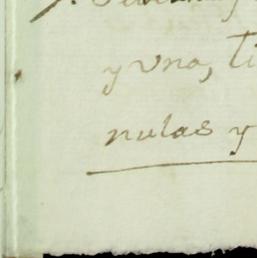 y vna, ti
nulas y